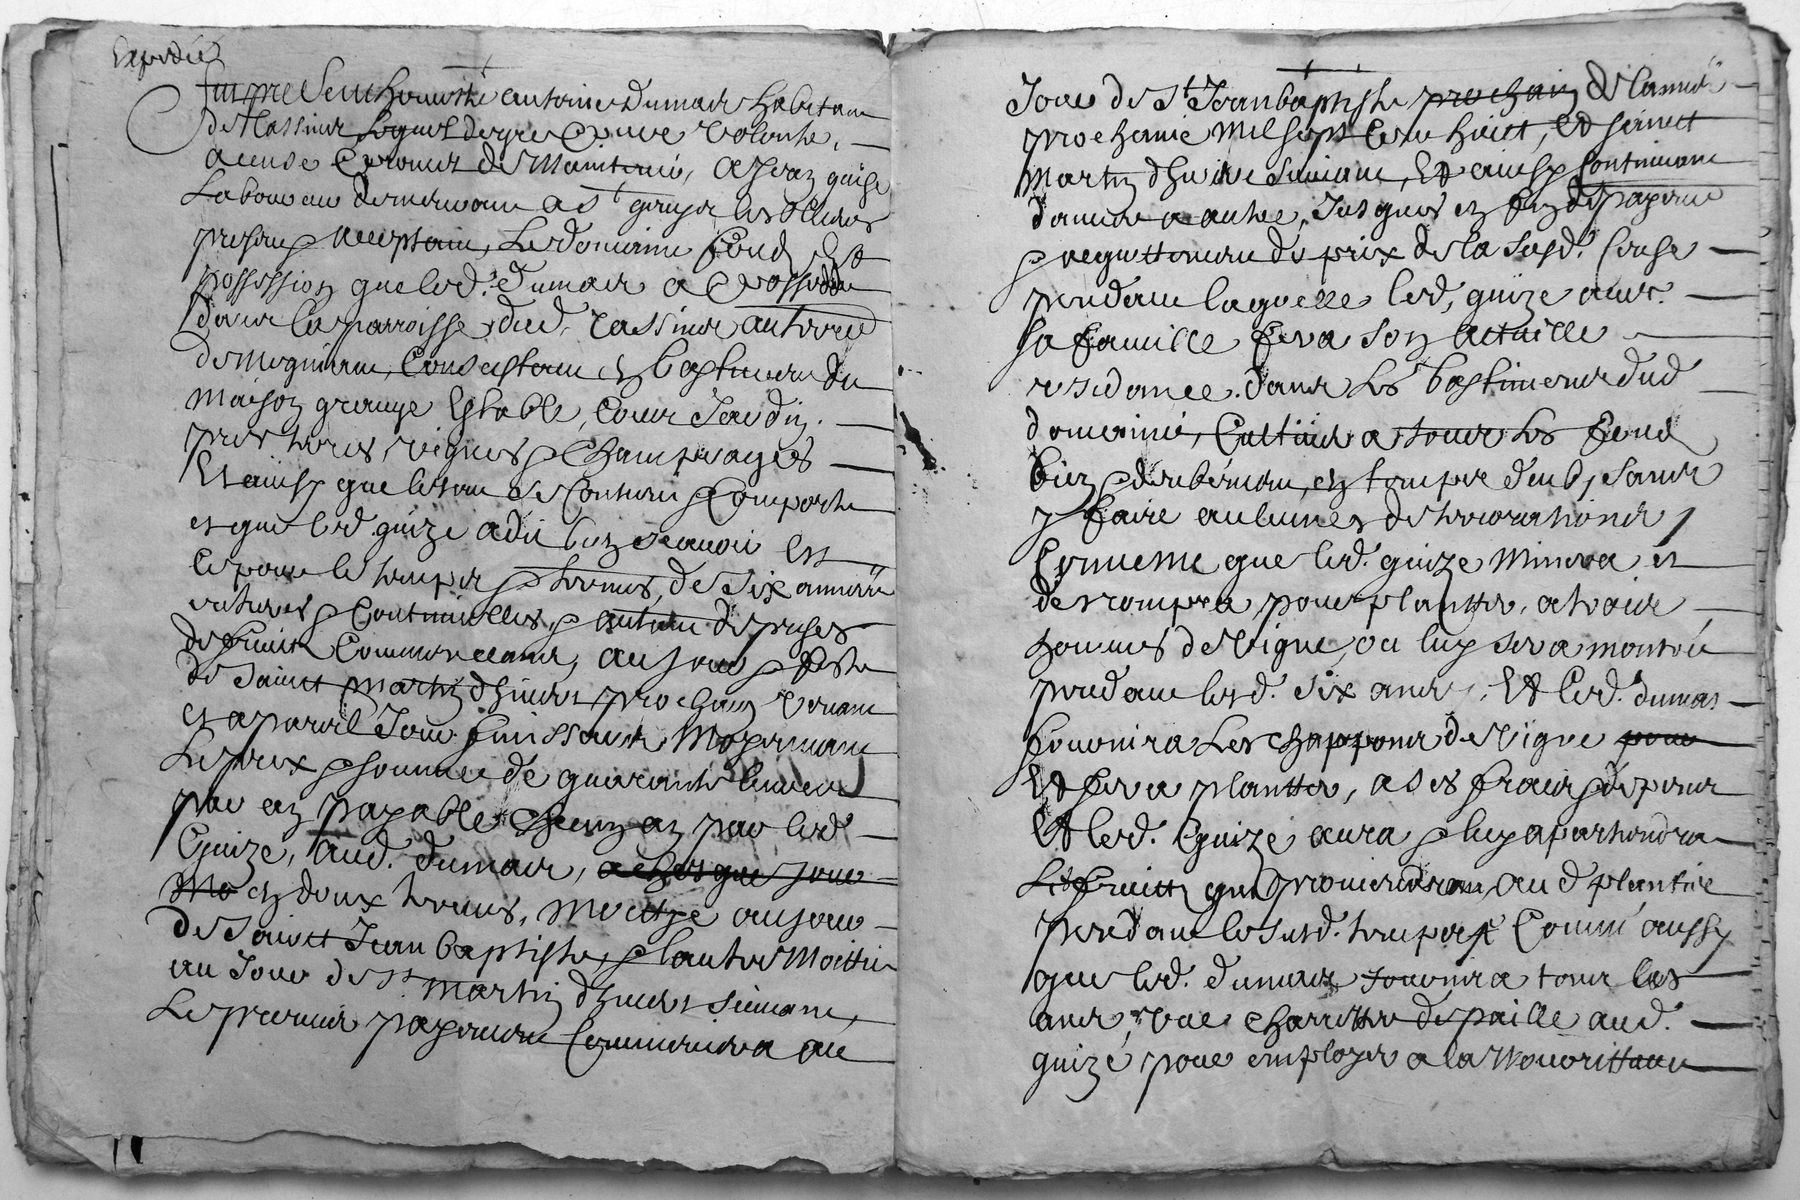 Expediée
honneste antoine dumair habitan
de Massieux lequel de gre pure volonte
accense de Maintenu, a Jean guise
Laboureur demeurant a St les Clunes
presans acceptans, Le domaine fond Et
possession que led. dumair a possedde
dans la parroisse dud. Massieux au terrie
de Mogniane, Consistans en bastimens du
maison grange Estable, Cour Jardin.
pres terres, vignes, p Champeages
Et ainsy que le tout se Contient p Comporte
et que led. guize a dit bien scavoir Est
Ce pour le temps p termes, de six années
entieres p Continuelles, p autant de prises
de fruits Commenceans, au jour p feste
de Saint Martin d'hiver prochain venant
et a pareil Jour finissants Moyenant
Le prix p somme de quarante livres
par an payable Chacun an par led.
Guize, aud. dumair, a chasque jour
Mo en deux termes, Moittye au jour
de Saint Jean baptiste, p lautre Moittie
au Jour de St. Martin d'hiver suivant,
Le premier payement Commencera au
Jour de St. Jean baptiste prochain de lannée
prochaine Mil sept Cent huict, Et sainct
Martin d'hivere suivant, Et ainsy Continuant
d'année a autre, Jusques en fin de payement
p acquittement du prix de la susd. Cense
pendant laquelle led. guize avec
sa famille fera son actuelle
residance dans les bastimens dud
domaine, Cultivera tous les fond
bien p deubement, en temps deub, sans
y faire aulcunes deteriorations
Comme que led. guize Minera et
derompra, pour planter, a trois
hommes de Vigne, ou luy sera montré
pendant lesd. six ans, Et led. dumas
fournira Les Chappons de Vigne pour
Et fera planter, a ses frais p depens
Et led. Guize aura p luy apartiendra
Les fruits qui proviendron au d plantié
pendant le susd. temps Comme aussy
que led. dumair fournira tous les
ans, une charrette de paille aud.
guize, pour employer a la Nourritture